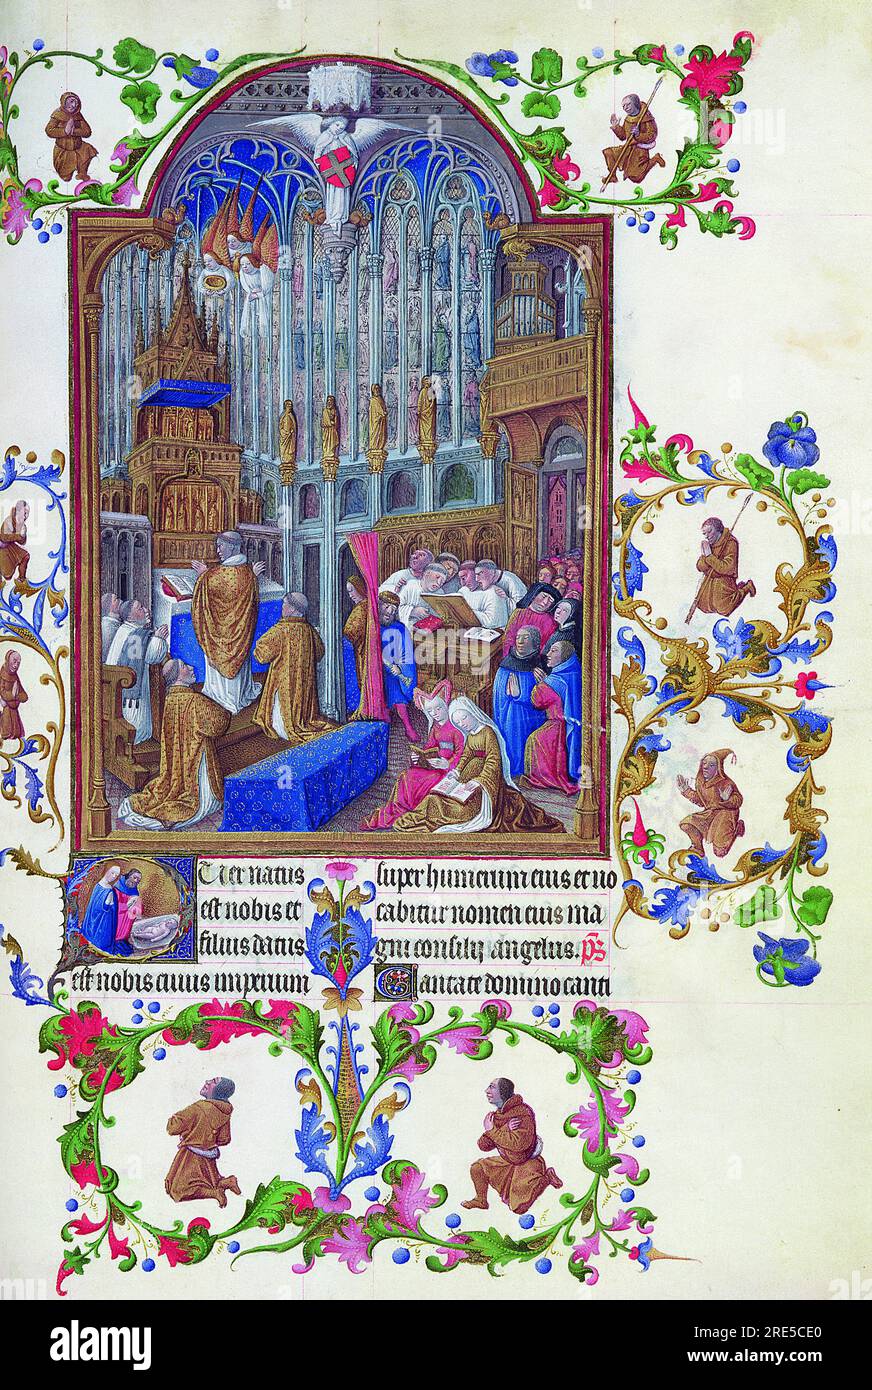 Puer natus
est nobis et
filius datus
est nobis cuius imperium
super humerum eius et uo
cabitur nomen eius ma
gni consilij angelus. p̅s̅
Cantate domino canti
alamy
Image ID: 2RE5CE0
www.alamy.com